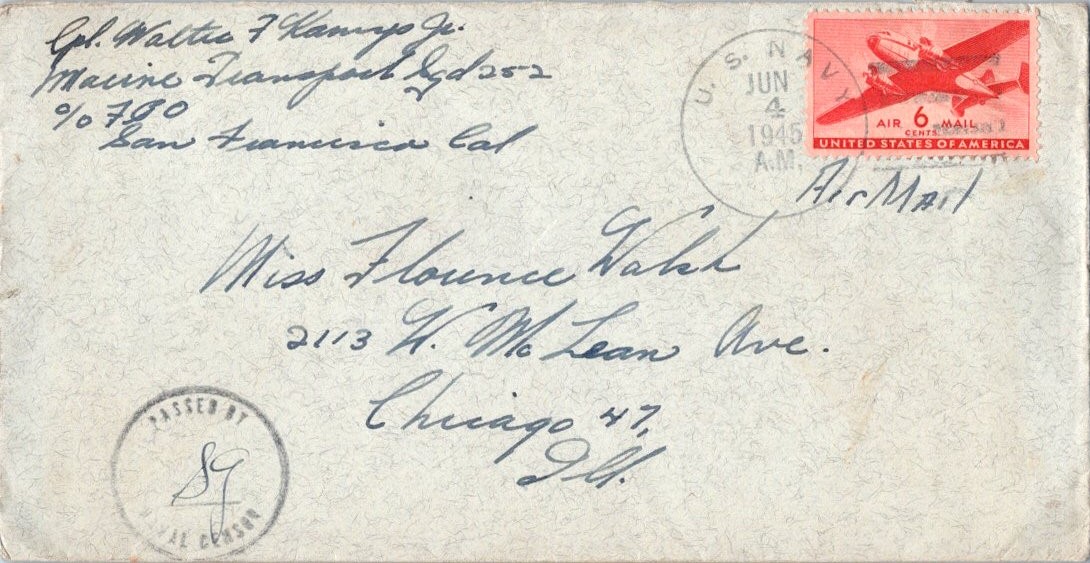 Cpl. Walter F Kamys Jr.
Marine Transport Sqd 252
c/o FPO
San Francisco Cal
U. S. NAVY
JUN
4
1945
A.M.
AIR 6 MAIL
CENTS
UNITED STATES OF AMERICA
Air Mail
Miss Florence Walsh
2113 W. Mc Lean Ave.
Chicago 47,
Ill.
PASSED BY
NAVAL CENSOR